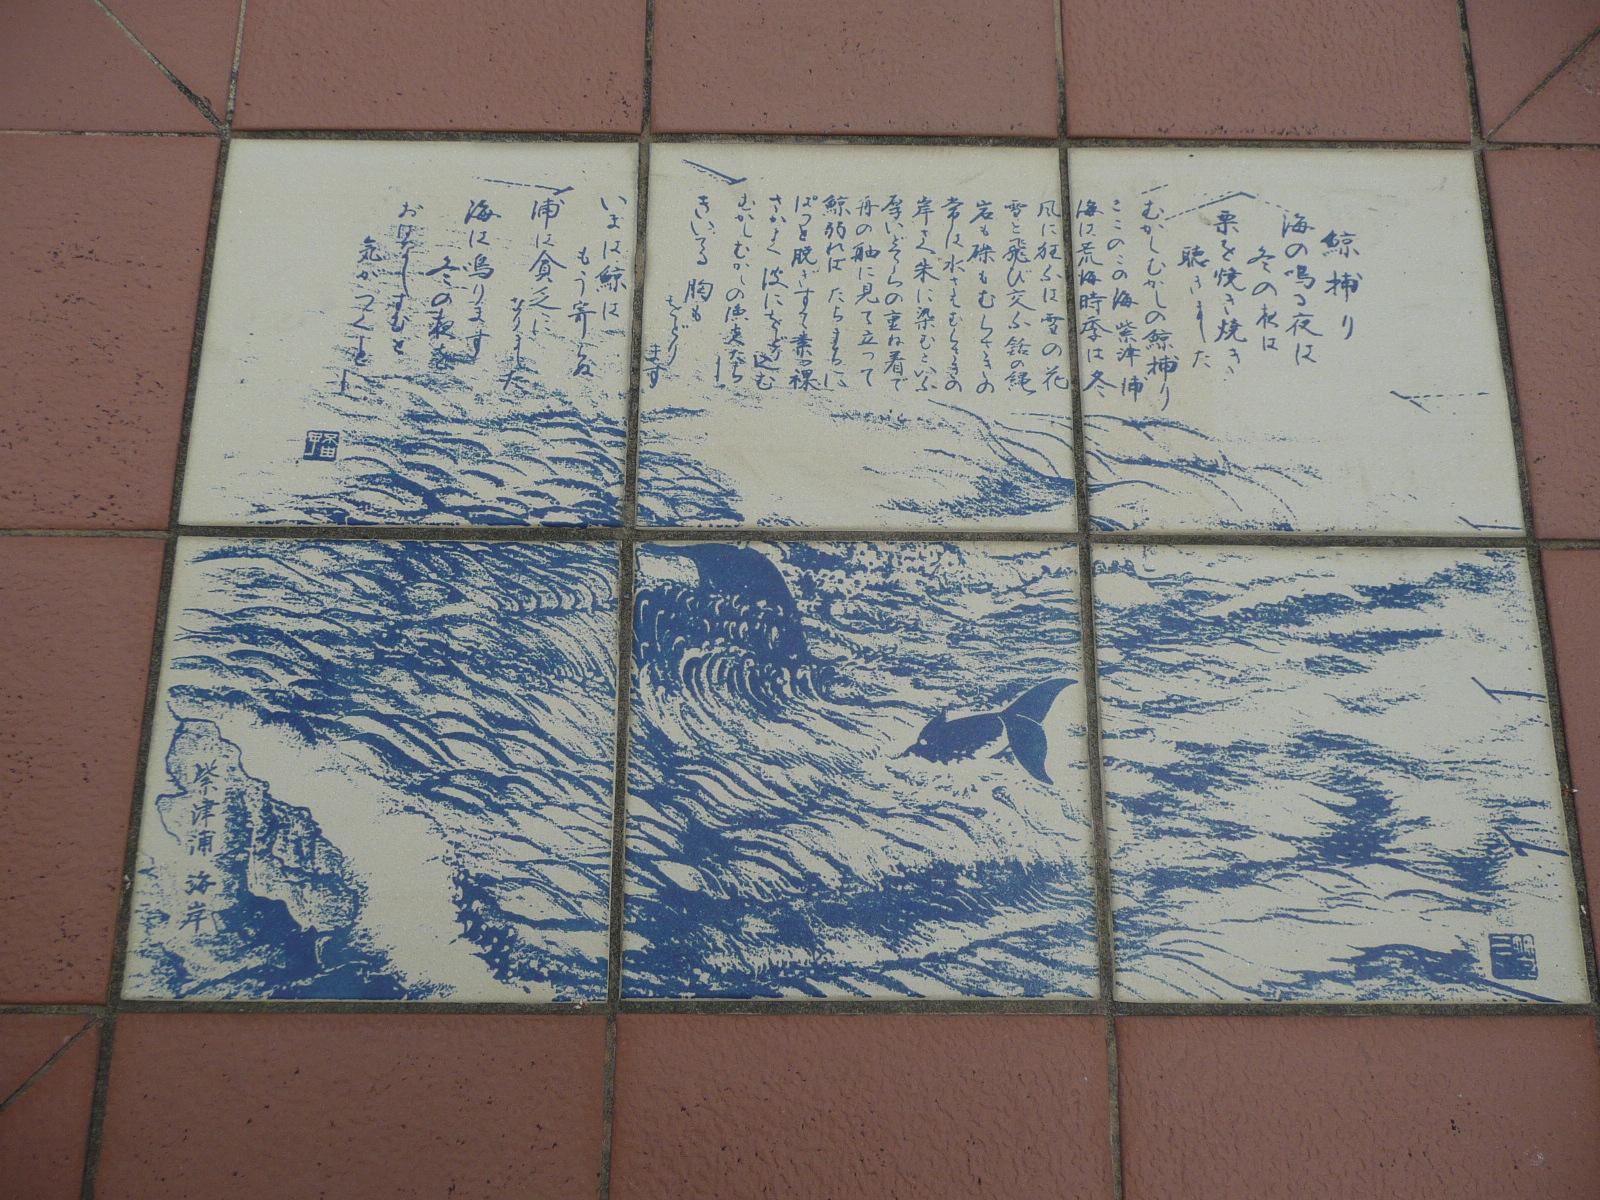 鯨捕り
海の鳴る夜は
冬の夜は
栗を焼き焼き
聴きました
むかしむかしの鯨捕り
ここのこの海 紫津浦
海は荒海 時季は冬、
風に狂ふは雪の花
雪と飛び交ふ銛の縄
岩も礫もむらさきの
常は水さえむらさきの
岸さへ朱に染むといふ
厚いどてらの重ね着で
舟の舳に見て立って
鯨弱ればたちまちに
ぱっと脱ぎすて素っ裸
さかまく波にをどり込む
むかしむかしの漁夫たち―
きいてる胸も
をどります
いまは鯨は
もう寄らぬ
浦は貧乏に
なりました
海は鳴ります
冬の夜を
おはなしすむと
気がつくと―
紫津浦 海岸